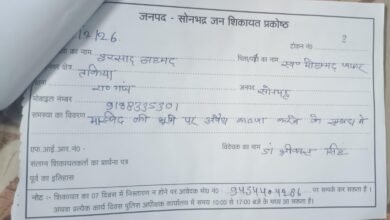 जनपद - सोनभद्र जन शिकायत प्रकोष्ठ
/2/26 टोकन नं० 2
का नाम इरशाद अहमद पिता/पति का नाम स्व०
क्षेत्र तकिया
रा० गंज जनपद सोनभद्र
मोबाइल नम्बर 9188335301
समस्या का विवरण मस्जिद की भूमि पर अवैध कब्जा करने के सम्बन्ध में
एफ.आई.आर.नं० विवेचक का नाम
संलग्न शिकायतकर्ता का प्रार्थना पत्र
पूर्व का इतिहास
नोट :- शिकायत का 07 दिवस में निस्तारण न होने पर आवेदक मो० नं० 9454404286 पर सम्पर्क कर सकता है।
अथवा प्रत्येक कार्य दिवस पुलिस अधीक्षक कार्यालय में समय 10:00 से 17:00 बजे के मध्य आना होगा।